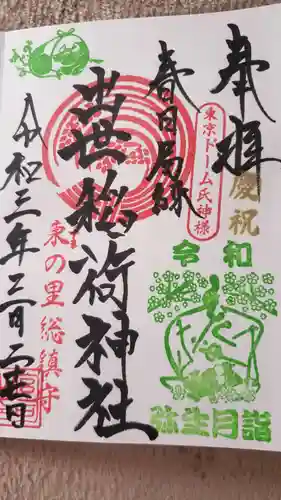 奉拝
慶祝
東京ドーム氏神様
春日局縁
出世稲荷神社
東の里総鎮守
令和
弥生月詣
令和三年三月二十七日